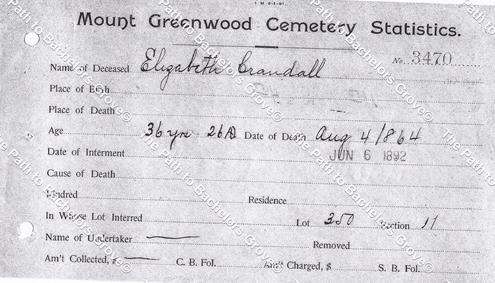 Mount Greenwood Cemetery Statistics.
No. 3470
Name of Deceased Elizabeth Crandall
Place of Birth
Place of Death
Age 36 yrs 26 D Date of Death Aug 4 1864
Date of Interment JUN 6 1892
Cause of Death
Kindred Residence
In Whose Lot Interred Lot 350 Section 11
Name of Undertaker Removed
Am't Collected, $ C. B. Fol. Am't Charged, $ S. B. Fol.
The Path to Bachelors Grove©